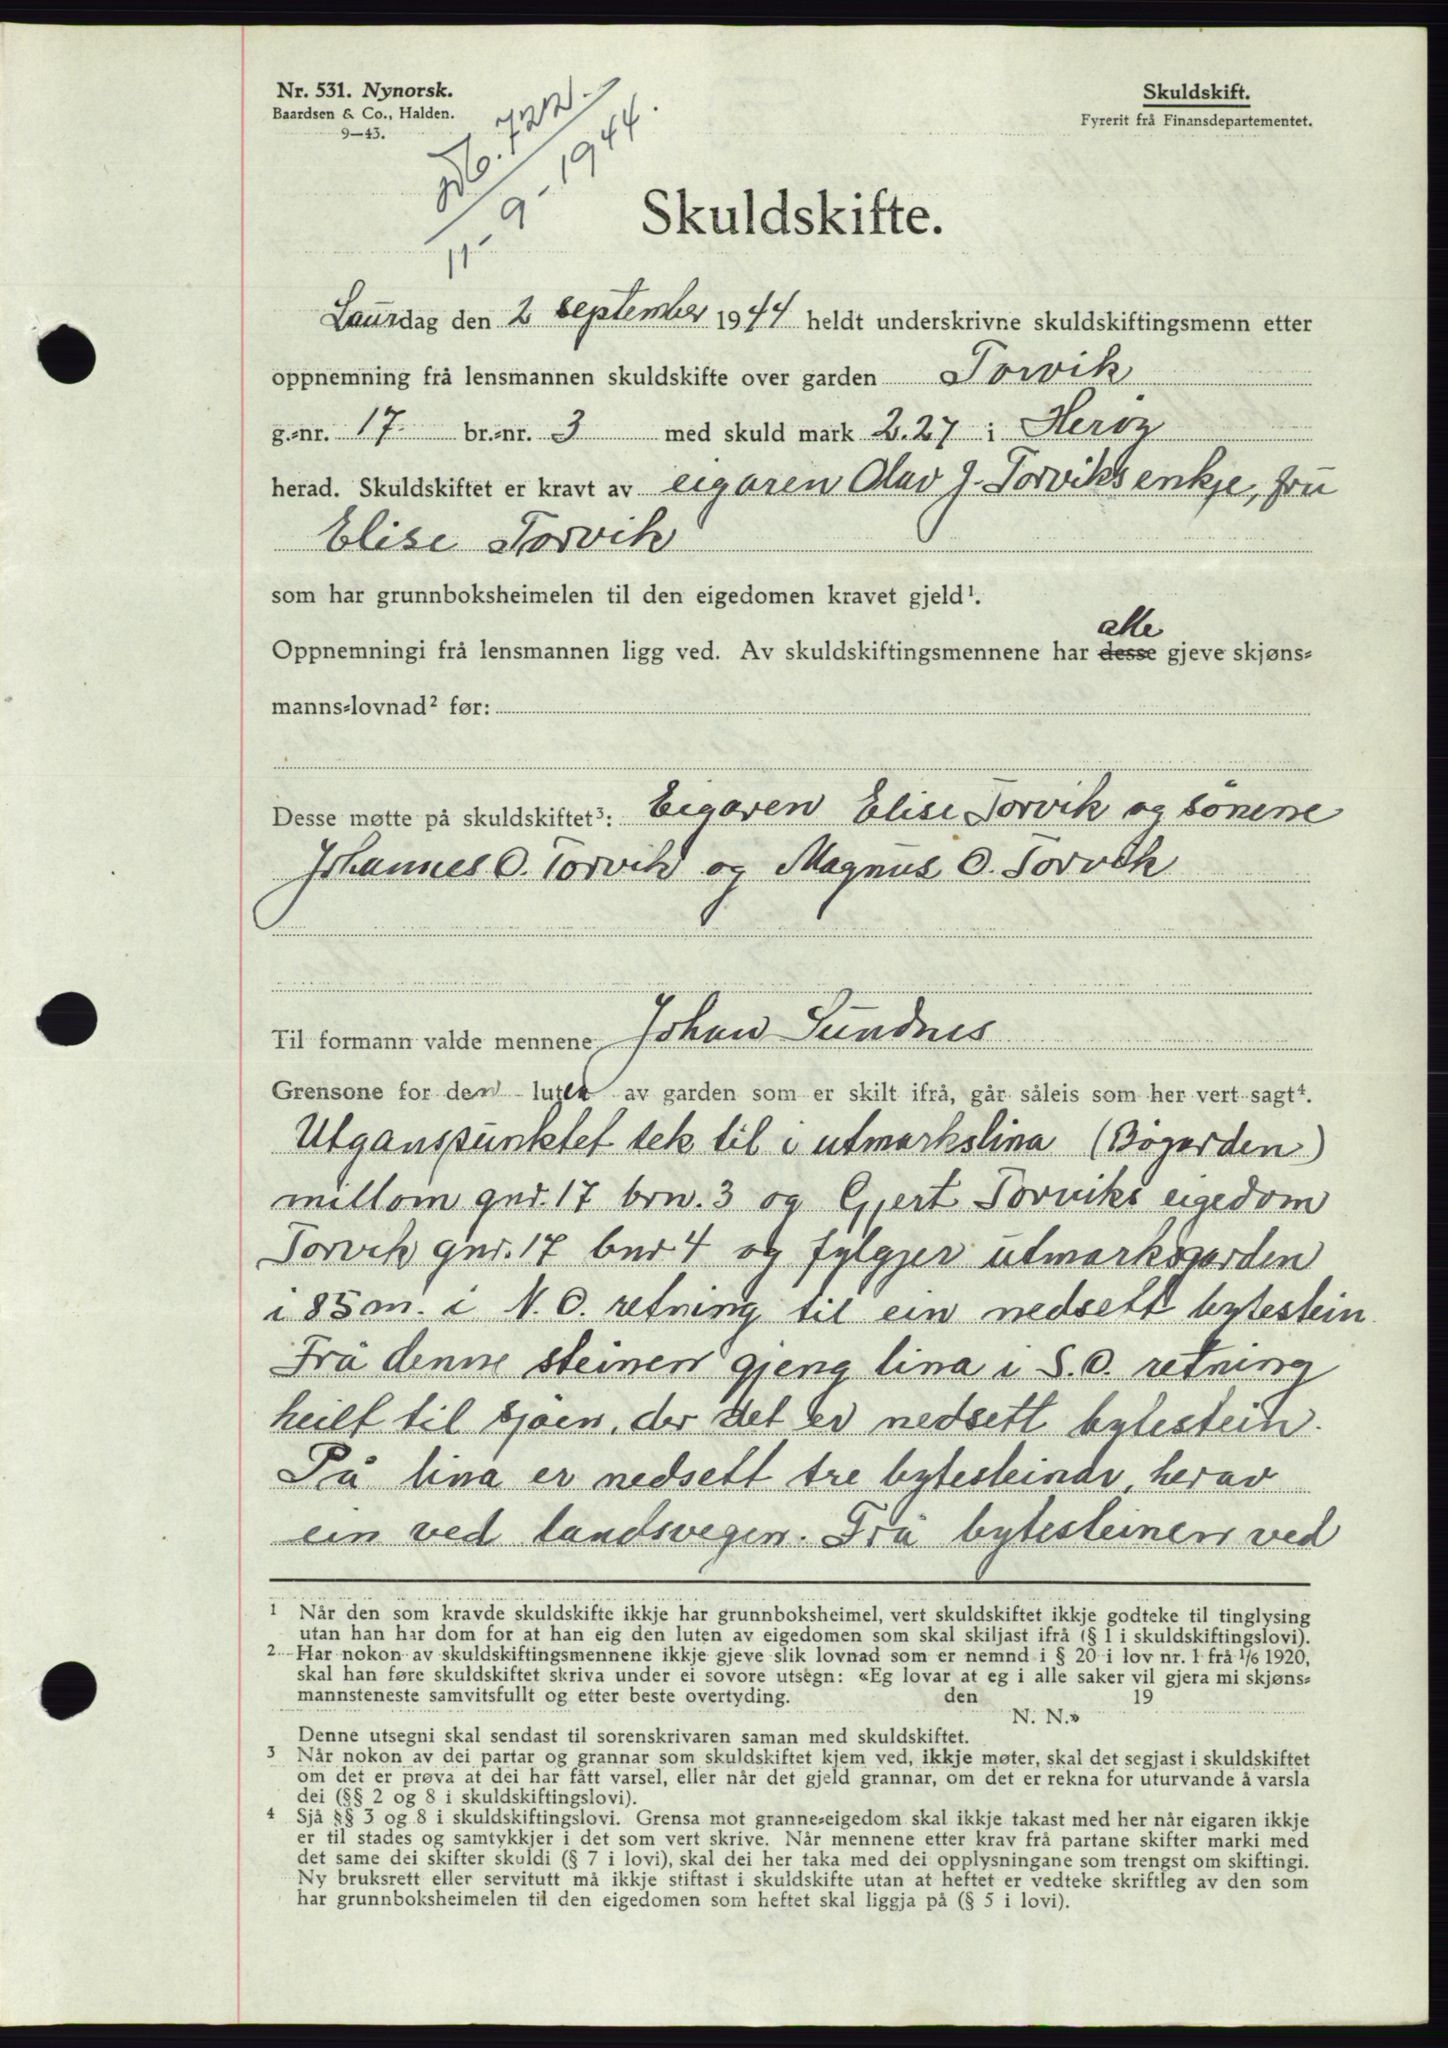 Nr. 531. Nynorsk.
Baardsen & Co., Halden.
9-43.
722.
11-9-1944.
Skuldskift.
Fyrerit frå Finansdepartementet.
Skuldskifte.
Laurdag den 2 september 1944 heldt underskrivne skuldskiftingsmenn etter
oppnemning frå lensmannen skuldskifte over garden Torvik
g.-nr. 17. br.-nr. 3 med skuld mark 2.27 i Herøy
herad. Skuldskiftet er kravt av eigaren Olav J. Torviks enkje, fru
Elise Torvik
som har grunnboksheimelen til den eigedomen kravet gjeld¹.
alle
Oppnemningi frå lensmannen ligg ved. Av skuldskiftingsmennene har desse gjeve skjøns-
manns-lovnad² før:
Desse møtte på skuldskiftet³: Eigaren Elise Torvik og sönene
Johannes O. Torvik og Magnus O. Torvik
Til formann valde mennene Johan Sundnes
Grensone for den luten av garden som er skilt ifrå, går såleis som her vert sagt⁴.
Utganspunktet tek til i utmarkslina (Bøgarden)
millom gnr. 17 brn. 3 og Gjert Torviks eigedom
Torvik gnr. 17 bnr 4 og fylgjer utmarksgarden
i 85 m. i N. O. retning til ein nedsett bytestein
Frå denne steinen gjeng lina i S. O. retning
heilt til sjöen, der det er nedsett bytestein.
På lina er nedsett tre bytesteinar, herav
ein ved landsvegen. Frå bytesteinen ved
1 Når den som kravde skuldskifte ikkje har grunnboksheimel, vert skuldskiftet ikkje godteke til tinglysing
utan han har dom for at han eig den luten av eigedomen som skal skiljast ifrå (§ 1 i skuldskiftingslovi).
2 Har nokon av skuldskiftingsmennene ikkje gjeve slik lovnad som er nemnd i § 20 i lov nr. 1 frå 1/6 1920,
skal han føre skuldskiftet skriva under ei sovore utsegn: «Eg lovar at eg i alle saker vil gjera mi skjøns-
mannsteneste samvitsfullt og etter beste overtyding. den 19
N. N.»
Denne utsegni skal sendast til sorenskrivaren saman med skuldskiftet.
3 Når nokon av dei partar og grannar som skuldskiftet kjem ved, ikkje møter, skal det segjast i skuldskiftet
om det er prøva at dei har fått varsel, eller når det gjeld grannar, om det er rekna for uturvande å varsla
dei (§§ 2 og 8 i skuldskiftingslovi).
4 Sjå §§ 3 og 8 i skuldskiftingslovi. Grensa mot granne-eigedom skal ikkje takast med her når eigaren ikkje
er til stades og samtykkjer i det som vert skrive. Når mennene etter krav frå partane skifter marki med
det same dei skifter skuldi (§ 7 i lovi), skal dei her taka med dei opplysningane som trengst om skiftingi.
Ny bruksrett eller servitutt må ikkje stiftast i skuldskifte utan at heftet er vedteke skriftleg av den som
har grunnboksheimelen til den eigedomen som heftet skal liggja på (§ 5 i lovi).